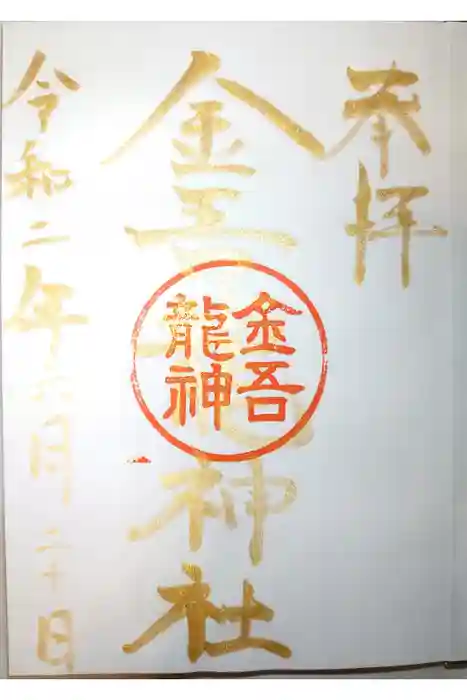 奉拝
金吾龍神社
金吾
龍神
令和二年六月二十日